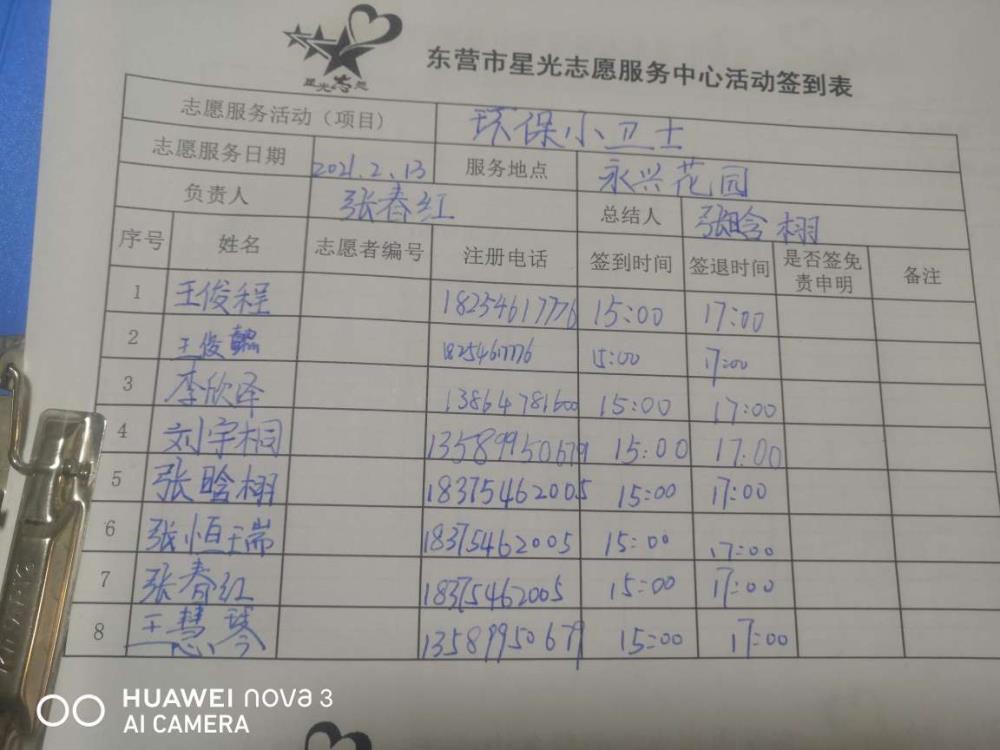 星光志愿
东营市星光志愿服务中心活动签到表
志愿服务活动（项目） 环保小卫士
志愿服务日期 2021.2.13 服务地点 永兴花园
负责人 张春红 总结人 张晗栩
序号 姓名 志愿者编号 注册电话 签到时间 签退时间 是否签免责申明 备注
1 王俊程 18254617776 15:00 17:00
2 王俊懿 18254617776 15:00 17:00
3 李欣泽 13864781600 15:00 17:00
4 刘宇桐 13589950679 15:00 17:00
5 张晗栩 18375462005 15:00 17:00
6 张恒瑞 18375462005 15:00 17:00
7 张春红 18375462005 15:00 17:00
8 王慧琴 13589950679 15:00 17:00
HUAWEI nova 3
AI CAMERA